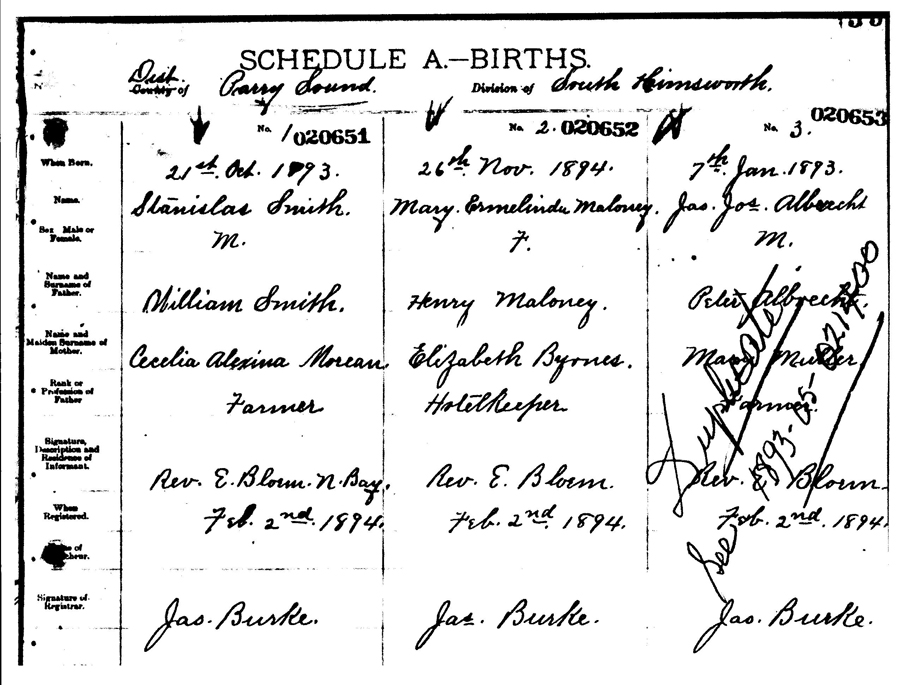 SCHEDULE A.—BIRTHS.
Dist.
County of Parry Sound. Division of South Himsworth.
No. 1 020651 No. 2. 020652 No. 3. 020653
When Born. 21st Oct. 1893. 26th Nov. 1894. 7th Jan. 1893.
Name. Stanislas Smith. Mary Ermelinda Maloney. Jas. Jos. Albrecht
Sex Male or Female. M. F. M.
Name and Surname of Father. William Smith. Henry Maloney. Peter Albrecht.
Name and Maiden Surname of Mother. Cecelia Alexina Moreau Elizabeth Byrnes. Mary
Rank or Profession of Father Farmer HotelKeeper Farmer.
Signature, Description and Residence of Informant. Rev. E. Bloem. N. Bay. Rev. E. Bloem. Rev. Bloem.
When Registered. Feb. 2nd. 1894. Feb. 2nd. 1894. Feb. 2nd. 1894.
Signature of Registrar. Jas. Burke. Jas. Burke. Jas. Burke.
Duplicate
See 1893-05-